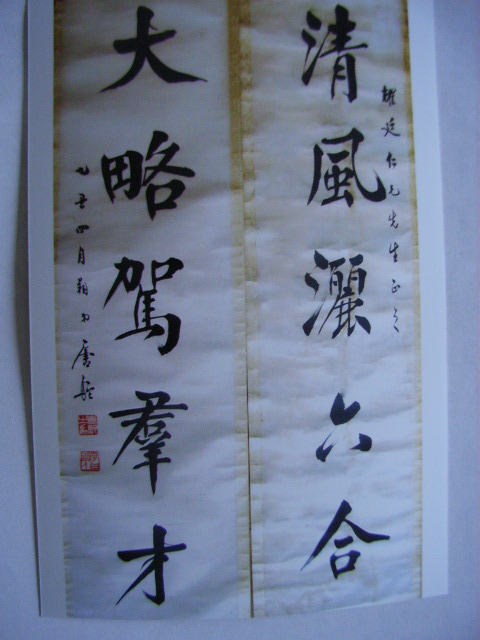 耀廷仁兄先生正之
清風灑六合
大略駕羣才
乙丑四月 唐駝